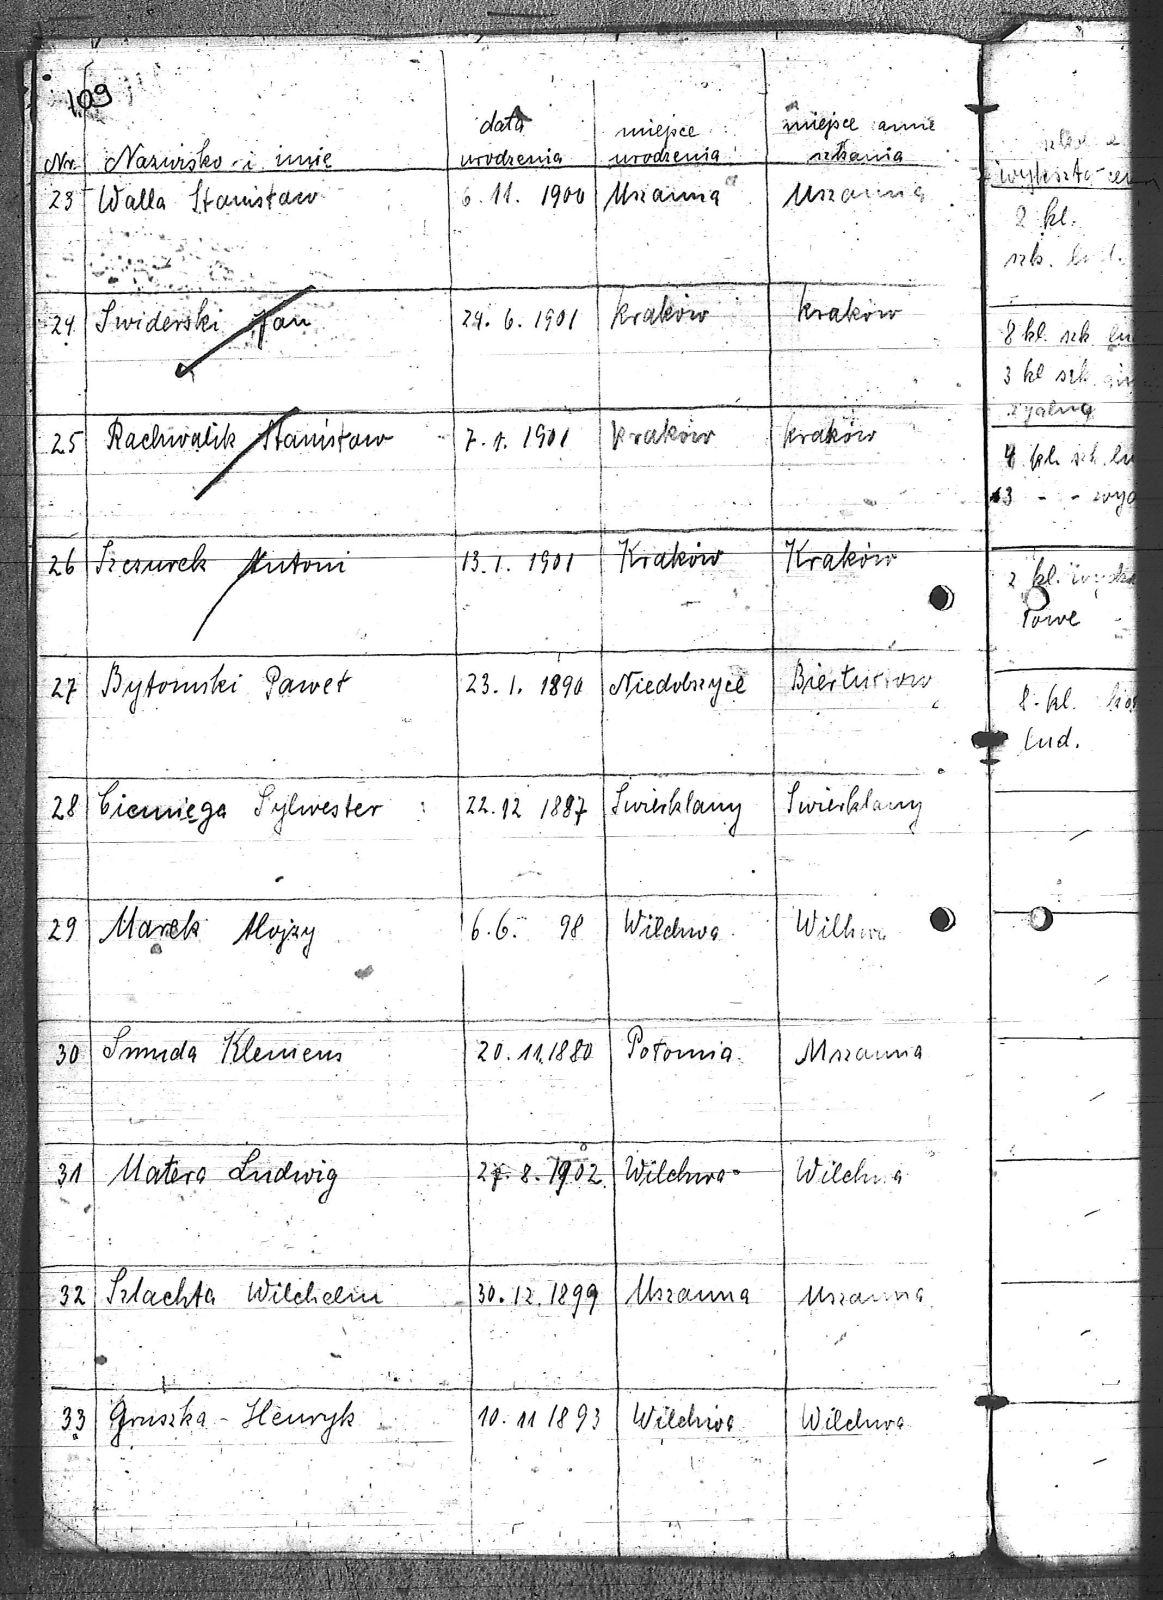 109
Nr. Nazwisko i imię data urodzenia miejsce urodzenia miejsce zamie szkania
23 Walla Stanisław 6. 11. 1900 Mszanna Mszanna
2 kl.
szk. lud.
24 Swiderski Jan 24. 6. 1901 Kraków Kraków
8 kl. szk. lu
3 kl szk.
25 Rachwalik Stanisław 7. 1. 1901 Kraków Kraków
4 kl. szk. lu
3 - - wyd
26 Szczurek Antoni 13. 1. 1901 Kraków Kraków
2 kl.
towe
27 Bytomski Paweł 23. 1. 1890 Niedobszyce Biertułtow
8. kl.
lud.
28 Cieniega Sylwester 22. 12 1887 Swierklany Swierklany
29 Marek Alojzy 6. 6. 98 Wilchwa Wilhwa
30 Smuda Klemens 20. 11. 1880 Połomia Mszanna
31 Matera Ludwig 27. 8. 1902 Wilchwa Wilchwa
32 Szlachta Wilchelm 30. 12. 1899 Mszanna Mszanna
33 Gruszka - Henryk 10. 11 1893 Wilchwa Wilchwa